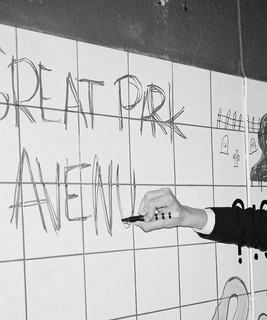 GREAT PARK
AVENU